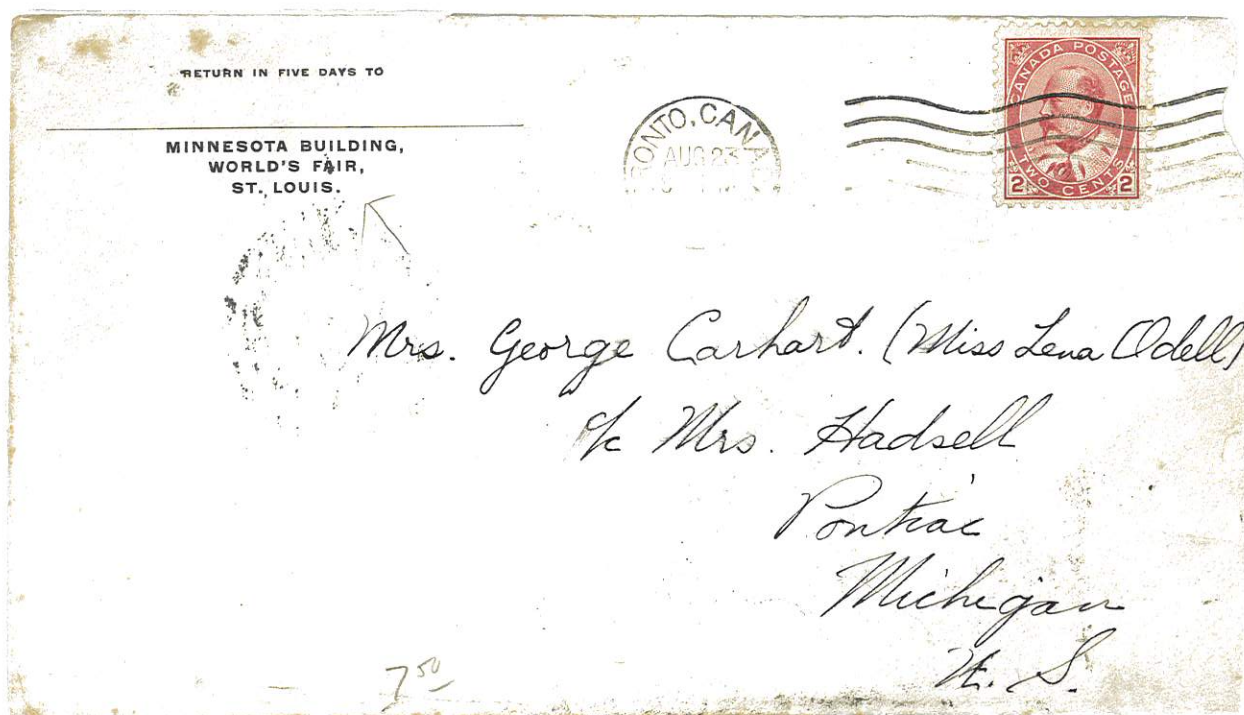 RETURN IN FIVE DAYS TO
MINNESOTA BUILDING,
WORLD'S FAIR,
ST. LOUIS.
ONTO, CANA
AUG 23
CANADA POSTAGE
2 TWO CENTS 2
Mrs. George Carhart. (Miss Lena Odell)
c/o Mrs. Hadsell
Pontiac
Michigan
U. S.
7 50